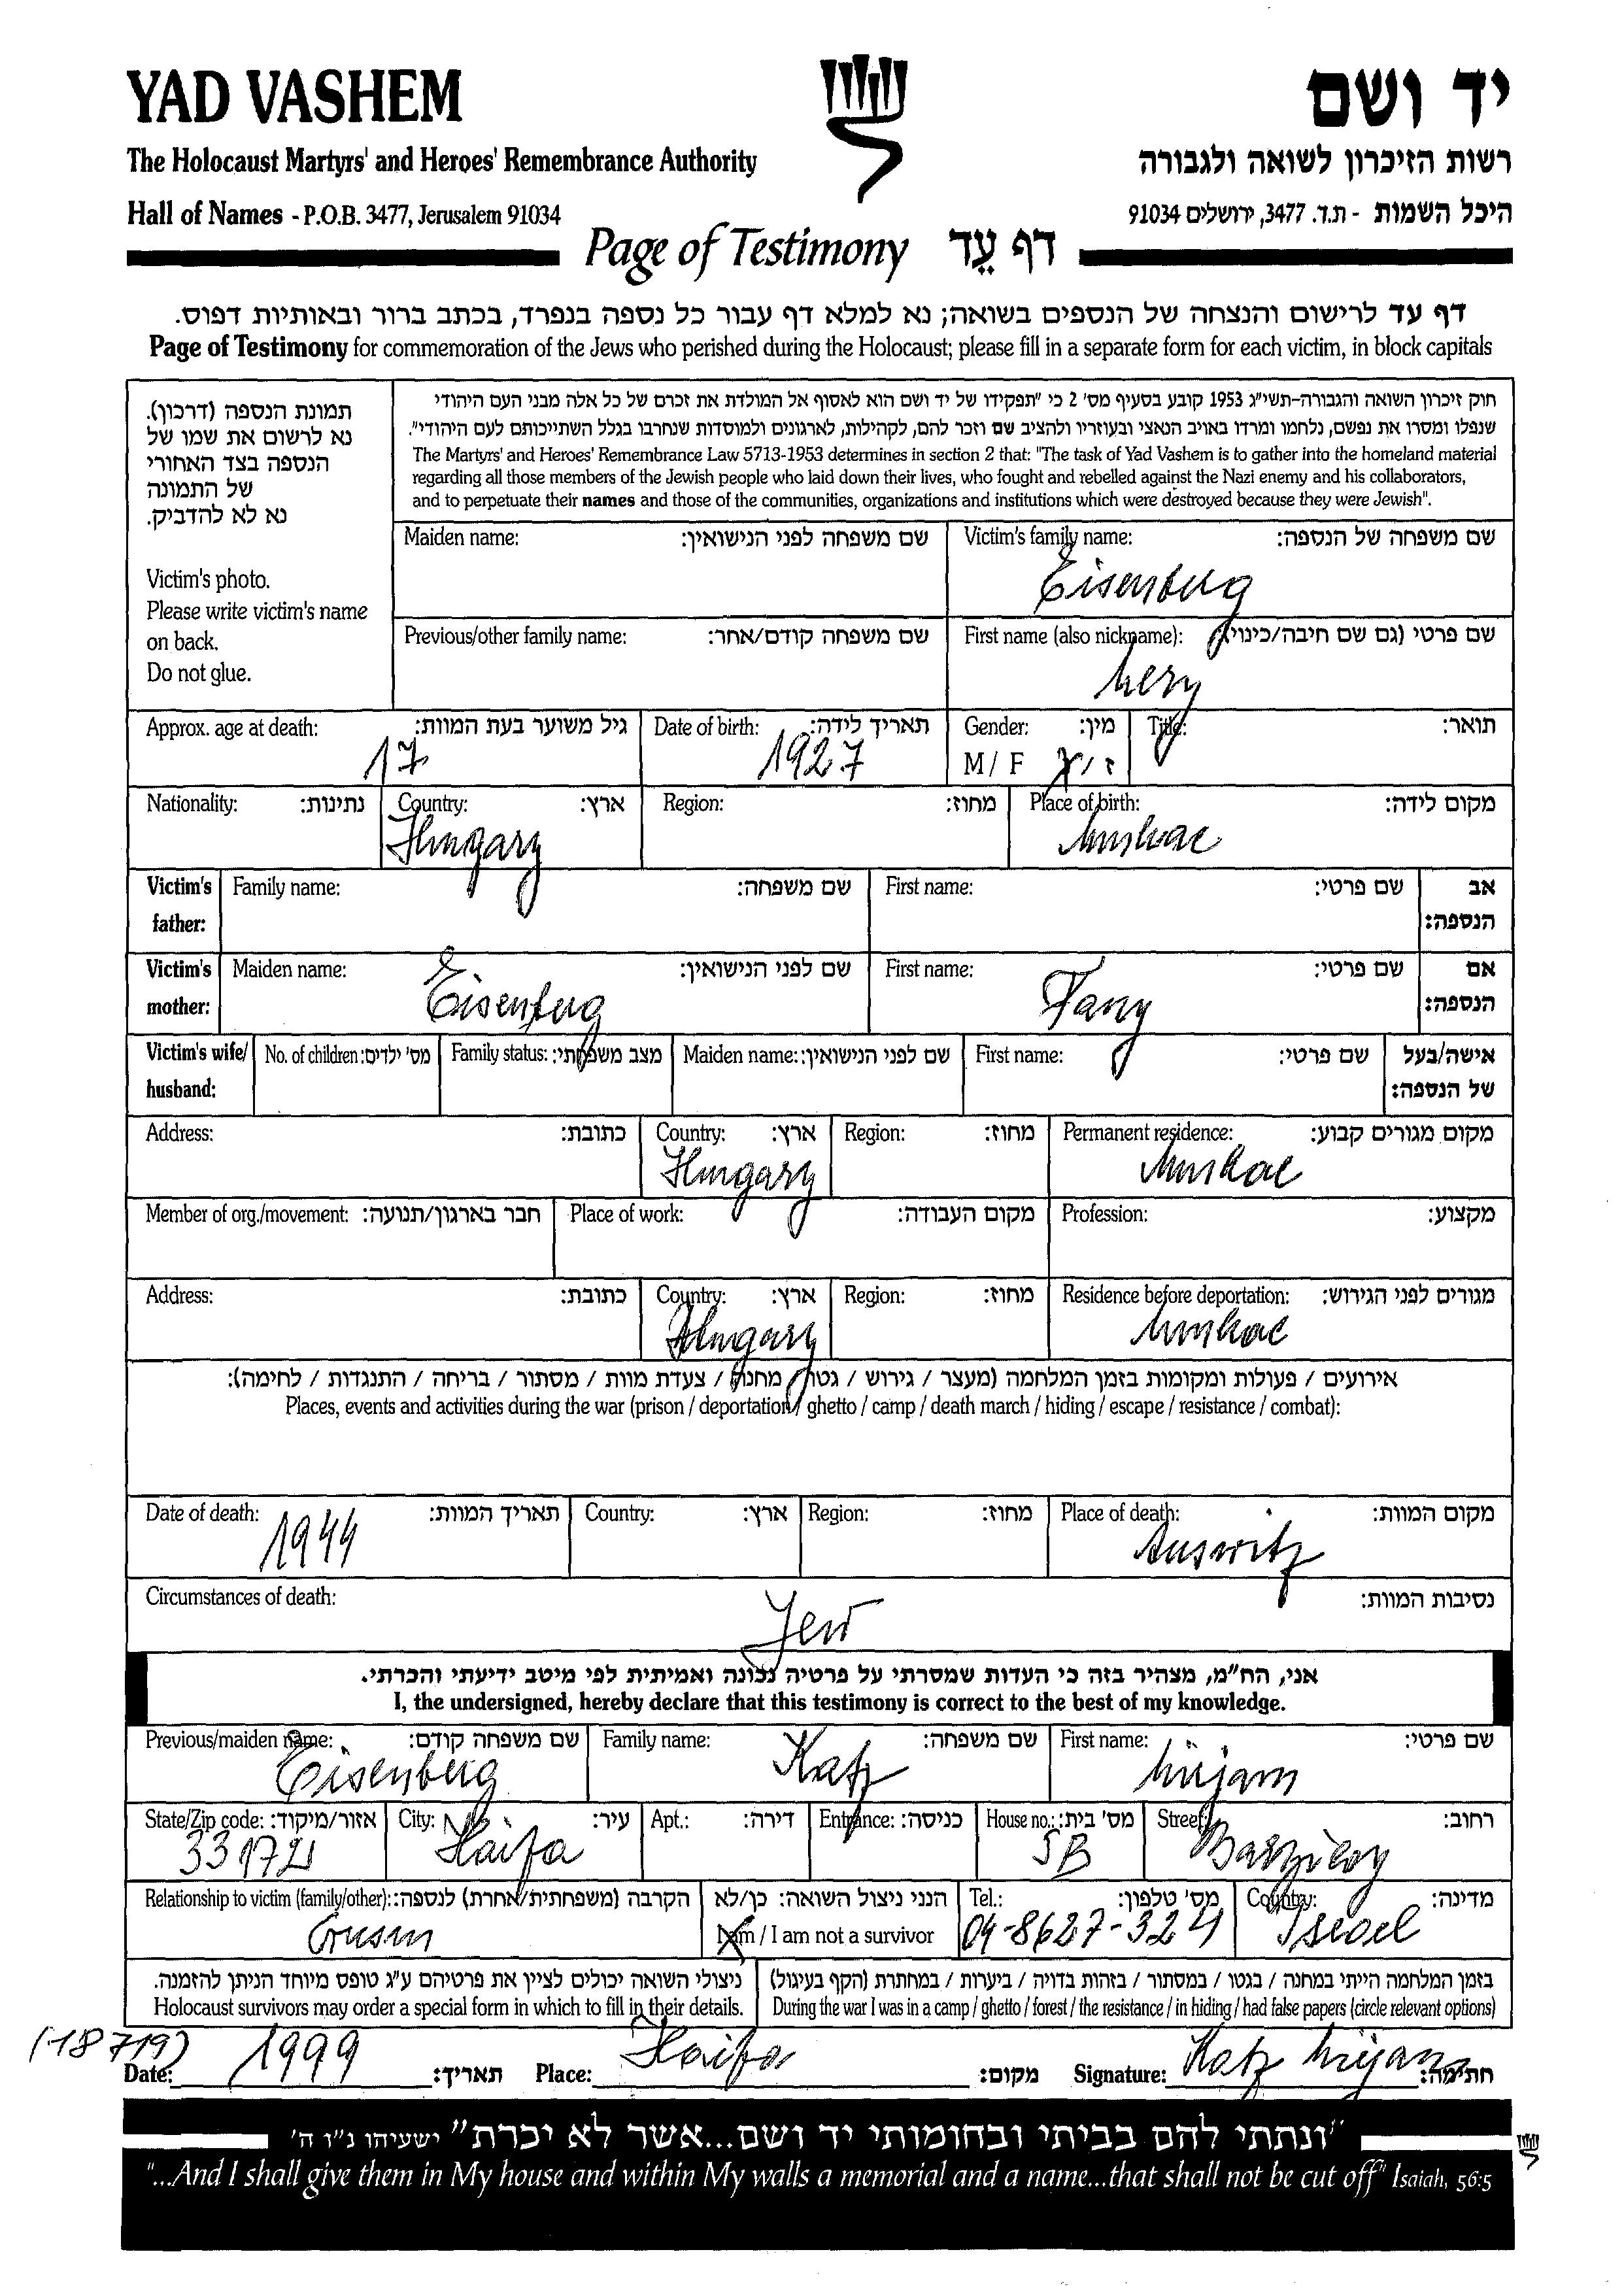 YAD VASHEM
יד ושם
The Holocaust Martyrs' and Heroes' Remembrance Authority
רשות הזיכרון לשואה ולגבורה
Hall of Names - P.O.B. 3477, Jerusalem 91034
היכל השמות - ת.ד. 3477, ירושלים 91034
Page of Testimony דף עֵד
דף עד לרישום והנצחה של הנספים בשואה; נא למלא דף עבור כל נספה בנפרד, בכתב ברור ובאותיות דפוס.
Page of Testimony for commemoration of the Jews who perished during the Holocaust; please fill in a separate form for each victim, in block capitals
תמונת הנספה (דרכון).
נא לרשום את שמו של
הנספה בצד האחורי
של התמונה
נא לא להדביק.
Victim's photo.
Please write victim's name
on back.
Do not glue.
חוק זיכרון השואה והגבורה-תשי"ג 1953 קובע בסעיף מס' 2 כי "תפקידו של יד ושם הוא לאסוף אל המולדת את זכרם של כל אלה מבני העם היהודי
שנפלו ומסרו את נפשם, נלחמו ומרדו באויב הנאצי ובעוזריו ולהציב שם וזכר להם, לקהילות, לארגונים ולמוסדות שנחרבו בגלל השתייכותם לעם היהודי".
The Martyrs' and Heroes' Remembrance Law 5713-1953 determines in section 2 that: "The task of Yad Vashem is to gather into the homeland material
regarding all those members of the Jewish people who laid down their lives, who fought and rebelled against the Nazi enemy and his collaborators,
and to perpetuate their names and those of the communities, organizations and institutions which were destroyed because they were Jewish".
Maiden name: שם משפחה לפני הנישואין:
Victim's family name: שם משפחה של הנספה:
Eisenberg
Previous/other family name: שם משפחה קודם/אחר:
First name (also nickname): שם פרטי (גם שם חיבה/כינוי):
Approx. age at death: גיל משוער בעת המוות:
17
Date of birth: תאריך לידה:
1927
Gender: מין:
M / F ז / נ
Title: תואר:
Nationality: נתינות:
Country: ארץ:
Hungary
Region: מחוז:
Place of birth: מקום לידה:
Munkac
Victim's father: Family name: שם משפחה:
First name: שם פרטי: אב הנספה:
Victim's mother: Maiden name: שם לפני הנישואין:
Eisenberg
First name: שם פרטי: אם הנספה:
Fany
Victim's wife/ husband: No. of children: מס' ילדים: Family status: מצב משפחתי: Maiden name: שם לפני הנישואין: First name: שם פרטי: אישה/בעל של הנספה:
Address: כתובת:
Country: ארץ:
Hungary
Region: מחוז:
Permanent residence: מקום מגורים קבוע:
Munkac
Member of org./movement: חבר בארגון/תנועה: Place of work: מקום העבודה: Profession: מקצוע:
Address: כתובת:
Country: ארץ:
Hungary
Region: מחוז:
Residence before deportation: מגורים לפני הגירוש:
Munkac
אירועים / פעולות ומקומות בזמן המלחמה (מעצר / גירוש / גטו / מחנה / צעדת מוות / מסתור / בריחה / התנגדות / לחימה):
Places, events and activities during the war (prison / deportation / ghetto / camp / death march / hiding / escape / resistance / combat):
Date of death: תאריך המוות:
1944
Country: ארץ: Region: מחוז:
Place of death: מקום המוות:
Auswitz
Circumstances of death: נסיבות המוות:
Jew
אני, הח"מ, מצהיר בזה כי העדות שמסרתי על פרטיה נכונה ואמיתית לפי מיטב ידיעתי והכרתי.
I, the undersigned, hereby declare that this testimony is correct to the best of my knowledge.
Previous/maiden name: שם משפחה קודם:
Eisenberg
Family name: שם משפחה:
Katz
First name: שם פרטי:
Mirjam
State/Zip code: אזור/מיקוד:
City: עיר:
Haifa
Apt.: דירה: Entrance: כניסה:
House no.: מס' בית:
5B
Street: רחוב:
Barzilay
Relationship to victim (family/other): הקרבה (משפחתית/אחרת) לנספה:
Cousin
הנני ניצול השואה: כן/לא
I am / I am not a survivor
Tel.: מס' טלפון:
04-8627-324
Country: מדינה:
Israel
ניצולי השואה יכולים לציין את פרטיהם ע"ג טופס מיוחד הניתן להזמנה.
Holocaust survivors may order a special form in which to fill in their details.
בזמן המלחמה הייתי במחנה / בגטו / במסתור / בזהות בדויה / ביערות / במחתרת (הקף בעיגול)
During the war I was in a camp / ghetto / forest / the resistance / in hiding / had false papers (circle relevant options)
(18719)
Date: 1999 תאריך: Place: Haifa מקום: Signature: Katz Mirjam חתימה:
"ונתתי להם בביתי ובחומותי יד ושם...אשר לא יכרת" ישעיהו נ"ו ה'
"...And I shall give them in My house and within My walls a memorial and a name...that shall not be cut off" Isaiah, 56:5